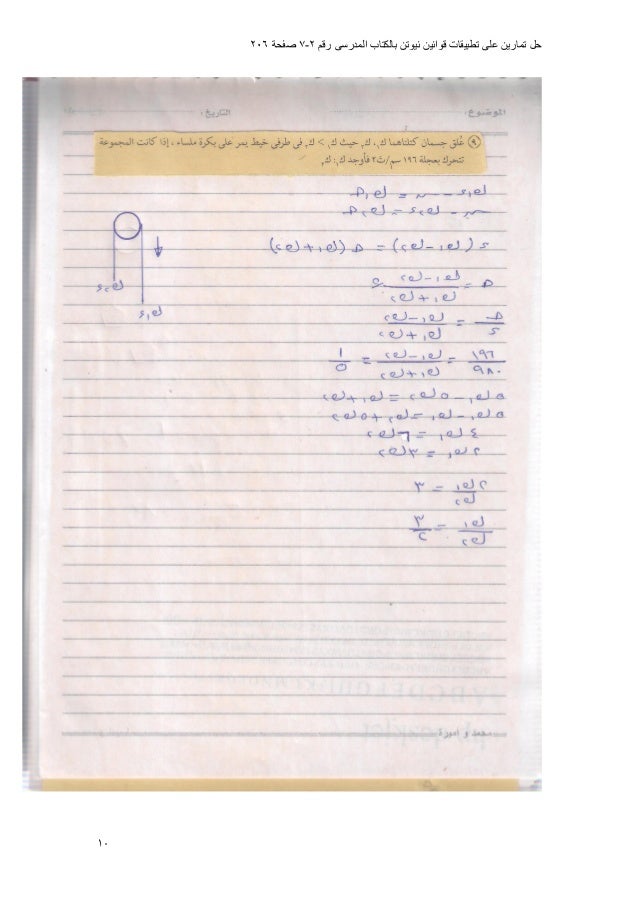 حل تمارين على تطبيقات قوانين نيوتن بالكتاب المدرسى رقم ٢-٧ صفحة ٢٠٦
الموضوع: التاريخ:
٩ عُلق جسمان كتلتاهما ك١، ك٢ حيث ك١ > ك٢ فى طرفى خيط يمر على بكرة ملساء ، إذا كانت المجموعة
تتحرك بعجلة ١٩٦ سم/ث٢ فأوجد ك١ : ك٢
ك١ء - سہ = ك١حـ
سہ - ك٢ء = ك٢حـ
ء (ك١ - ك٢) = حـ (ك١ + ك٢)
حـ = (ك١ - ك٢)/(ك١ + ك٢) ء
حـ/ء = (ك١ - ك٢)/(ك١ + ك٢)
١٩٦/٩٨٠ = (ك١ - ك٢)/(ك١ + ك٢) = ١/٥
٥ك١ - ٥ك٢ = ك١ + ك٢
٥ك١ - ك١ = ك٢ + ٥ك٢
٤ك١ = ٦ك٢
٢ك١ = ٣ك٢
٢ك١/ك٢ = ٣
ك١/ك٢ = ٣/٢
ك٢ء
ك١ء
محمد و أميرة
١٠